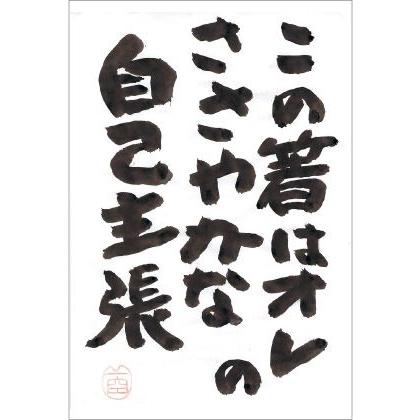 この箸はオレの
ささやかな
自己主張